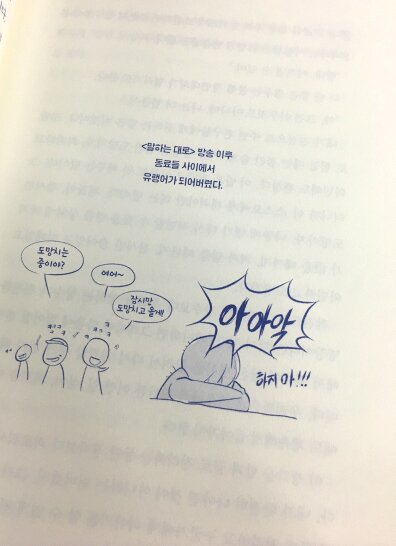 <말하는 대로> 방송 이후
동료들 사이에서
유행어가 되어버렸다.
도망치는
중이야?
여어~
잠시만
도망치고 올게!
ㅋㅋㅋ
ㅋㅋ
ㅋㅋㅋ
ㅋㅋ
아아악
하지 마!!!